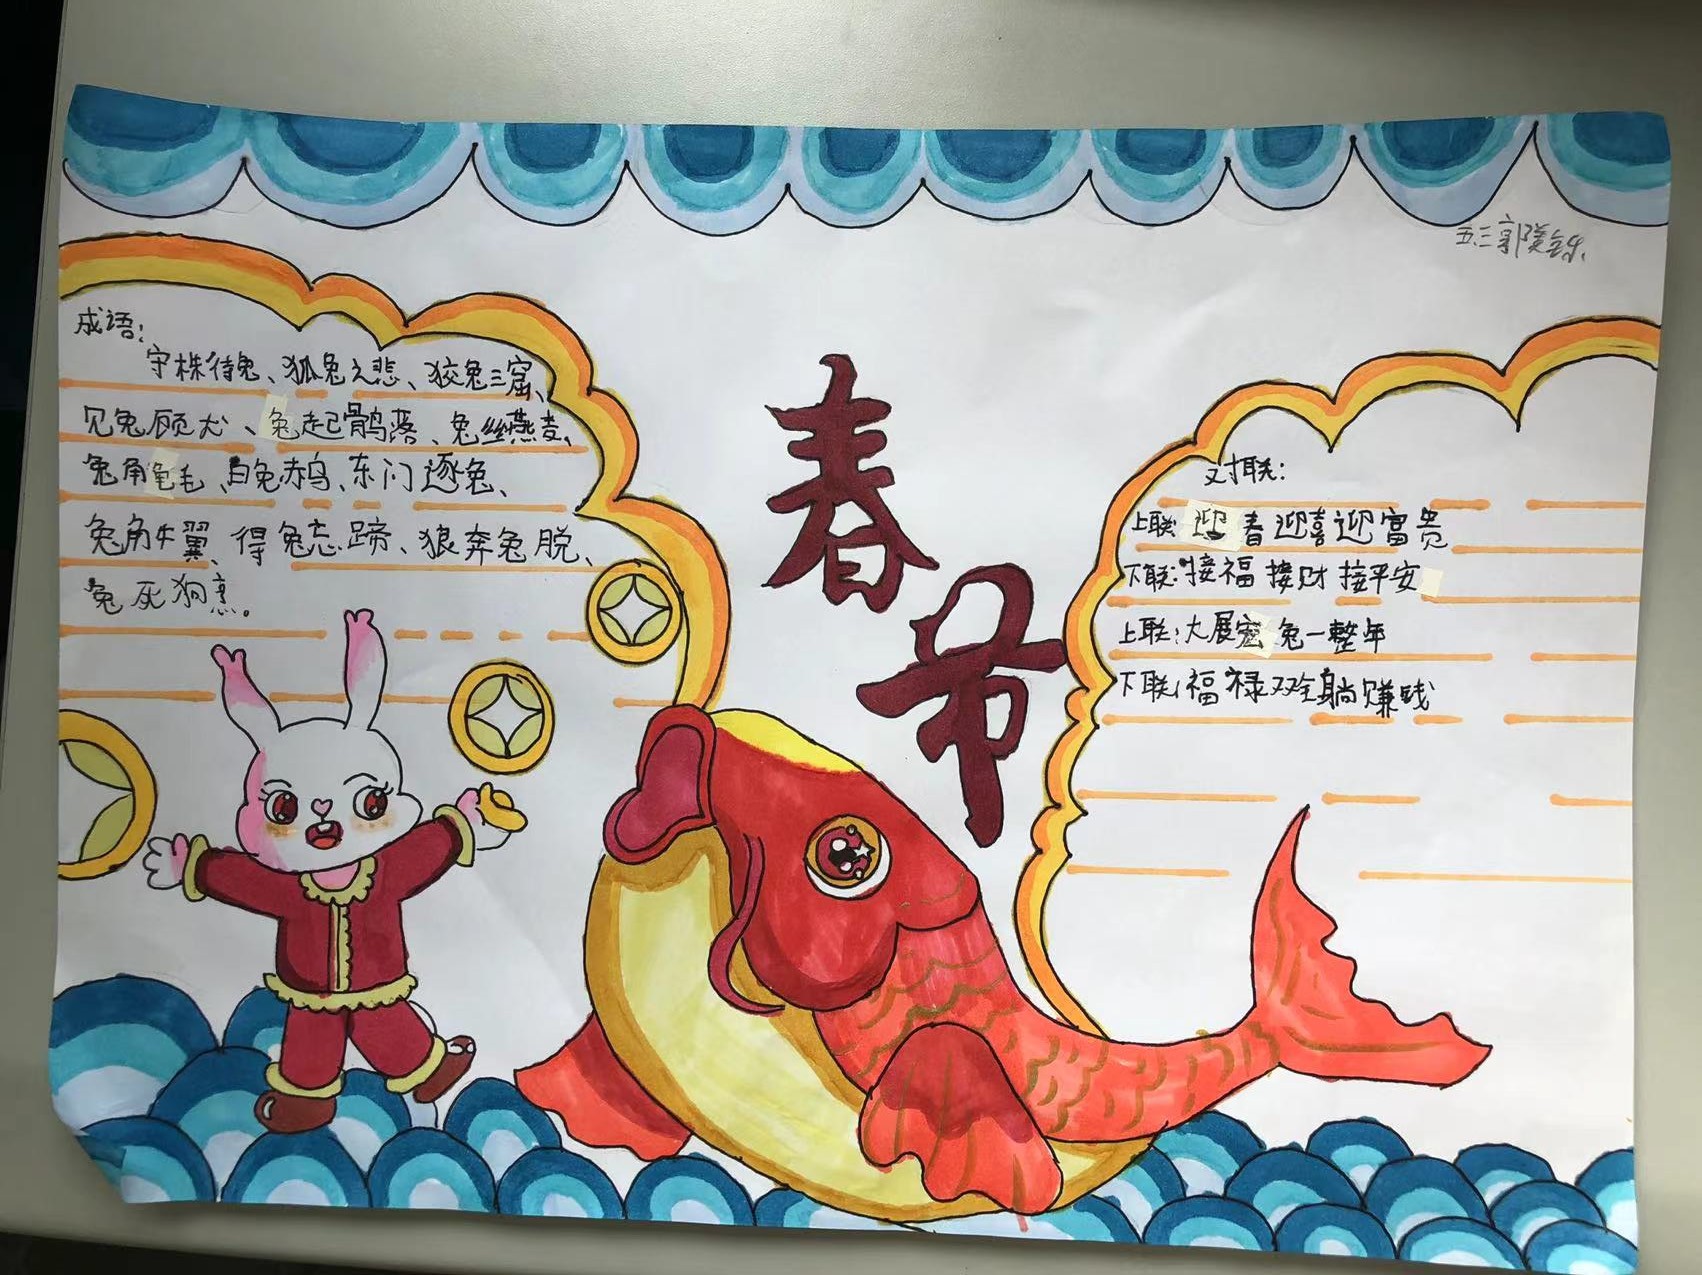 五三郭
成语:
守株待兔、狐兔之悲、狡兔三窟、
见兔顾犬、兔起鹘落、兔丝燕麦、
兔角龟毛、白兔赤乌、东门逐兔、
兔角牛翼、得兔忘蹄、狼奔兔脱、
兔死狗烹。
春节
对联:
上联:迎春迎喜迎富贵
下联:接福接财接平安
上联:大展宏兔一整年
下联:福禄双全躺赚钱